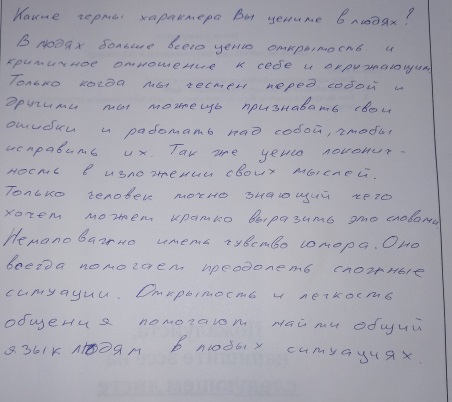 Какие черты характера Вы цените в людях?
В людях больше всего ценю открытость и
критичное отношение к себе и окружающим
Только когда ты честен перед собой и
другими ты можешь признавать свои
ошибки и работать над собой, чтобы
исправить их. Так же ценю локонич-
ность в изложении своих мыслей.
Только человек точно знающий чего
хочет может кратко выразить это словами
Немаловажно иметь чувство юмора. Оно
всегда помогает преодолеть сложные
ситуации. Открытость и легкость
общения помогают найти общий
язык людям в любых ситуациях.